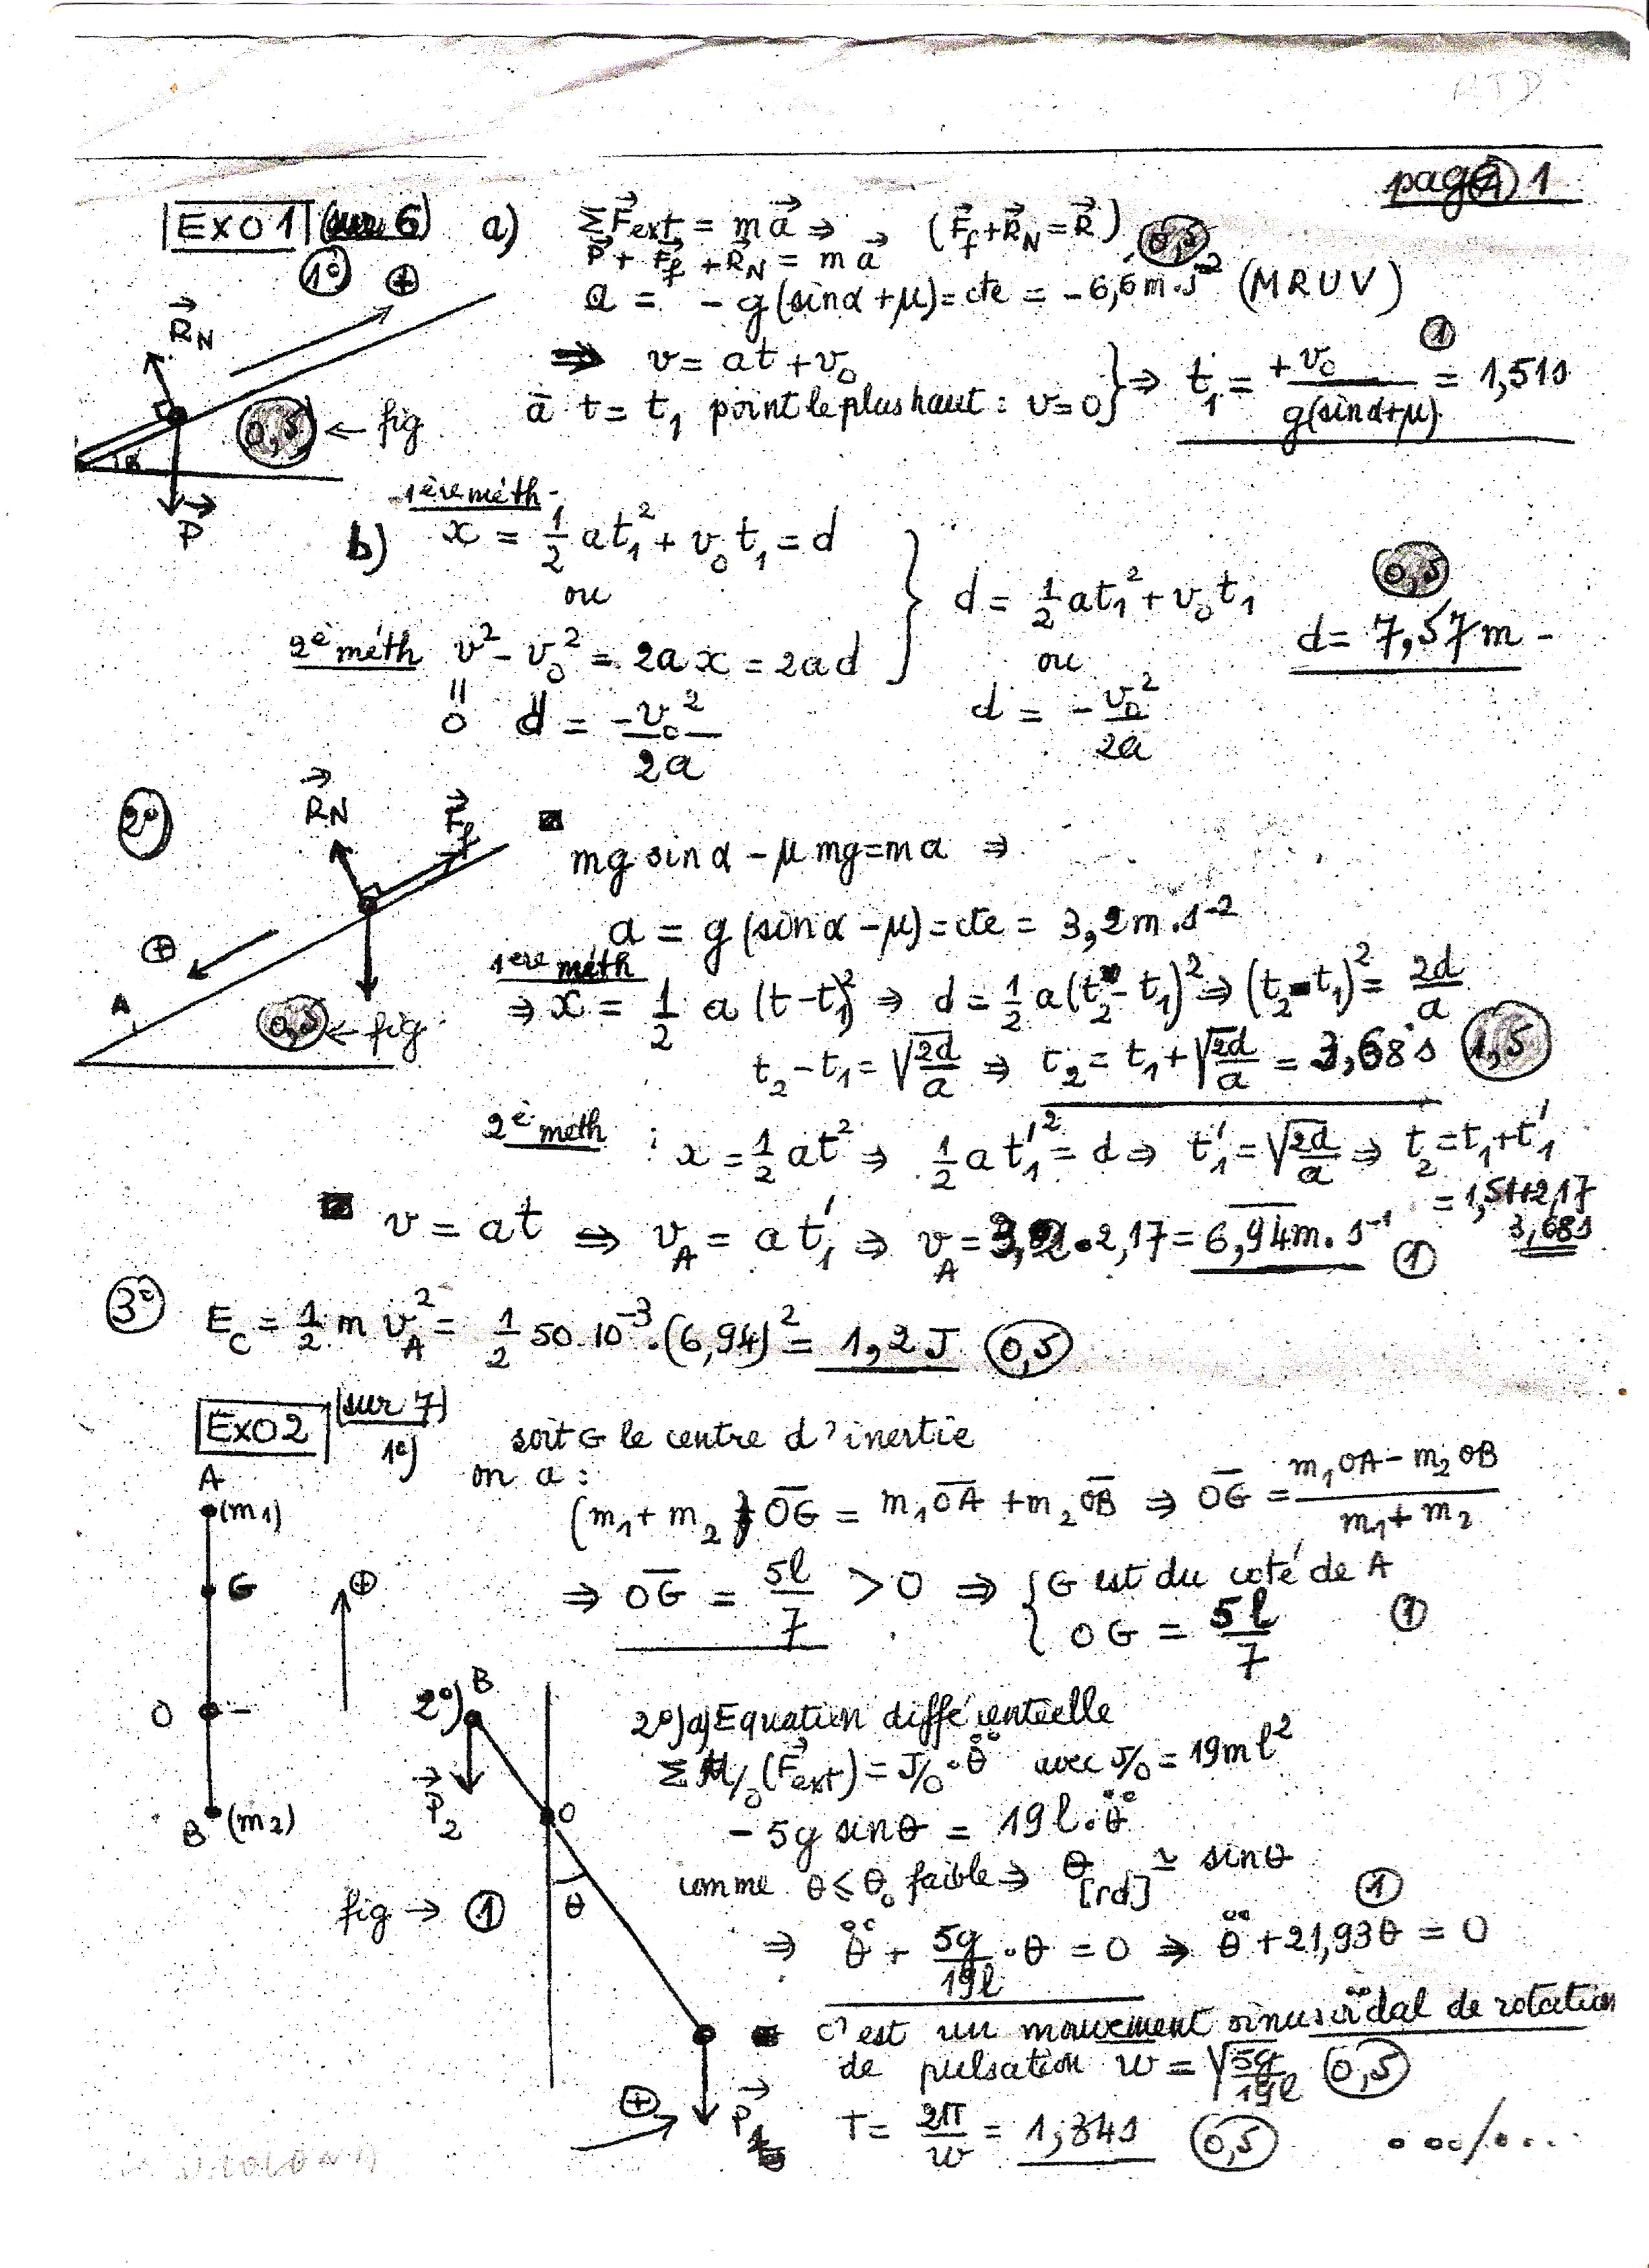 page 1
EXO1 (sur 6) a) ΣF⃗ext = ma⃗ ⇒ (F⃗f + R⃗N = R⃗) 0,5
1°) ⊕ P⃗ + F⃗f + R⃗N = ma⃗
a = - g(sinα + μ) = cte = -6,6 m.s⁻² (MRUV)
R⃗N
⇒ v = at + v₀
à t = t₁ point le plus haut : v = 0 } ⇒ t₁ = +v₀ / g(sinα+μ) = 1,51s ①
0,5 ← fig
α
P⃗
1ère méth
b) x = 1/2 at₁² + v₀t₁ = d
ou
2è méth v² - v₀² = 2ax = 2ad
0 d = -v₀²/2a
d = 1/2 at₁² + v₀t₁
ou
d = - v₀²/2a
0,5
d = 7,57m
2°) R⃗N F⃗f
mg sinα - μmg = ma ⇒
a = g(sinα - μ) = cte = 3,2m.s⁻²
⊕
A
0,5 ← fig
1ère méth
⇒ x = 1/2 a(t-t₁)² ⇒ d = 1/2 a(t₂-t₁)² ⇒ (t₂-t₁)² = 2d/a
t₂-t₁ = √2d/a ⇒ t₂ = t₁ + √2d/a = 3,68s 1,5
2è méth : x = 1/2 at² ⇒ 1/2 at'₁² = d ⇒ t'₁ = √2d/a ⇒ t₂ = t₁+t'₁
= 1,51+2,17
3,68s
v = at ⇒ vA = at'₁ ⇒ vA = 3,2 • 2,17 = 6,94m.s⁻¹ ①
3°) Ec = 1/2 m vA² = 1/2 50.10⁻³.(6,94)² = 1,2J 0,5
EXO2 (sur 7)
1°) soit G le centre d'inertie
on a :
(m₁+m₂) OG = m₁OA + m₂OB ⇒ OG = m₁OA - m₂OB / m₁+m₂
⇒ OG = 5l/7 > 0 ⇒ { G est du coté de A
OG = 5l/7 ①
A (m1)
G
⊕
O
B (m2)
2°) B
P⃗2
O
θ
fig → ①
⊕
P⃗1
2°) a) Equation différentielle
ΣM/₀(F⃗ext) = J/₀.θ̈ avec J/₀ = 19ml²
- 5g sinθ = 19l.θ̈
comme θ ≤ θ₀ faible ⇒ θ[rd] ≃ sinθ
⇒ θ̈ + 5g/19l .θ = 0 ⇒ θ̈ + 21,93θ = 0 ①
c'est un mouvement sinusoïdal de rotation
de pulsation w = √5g/19l 0,5
T = 2π/w = 1,341 0,5
...../....